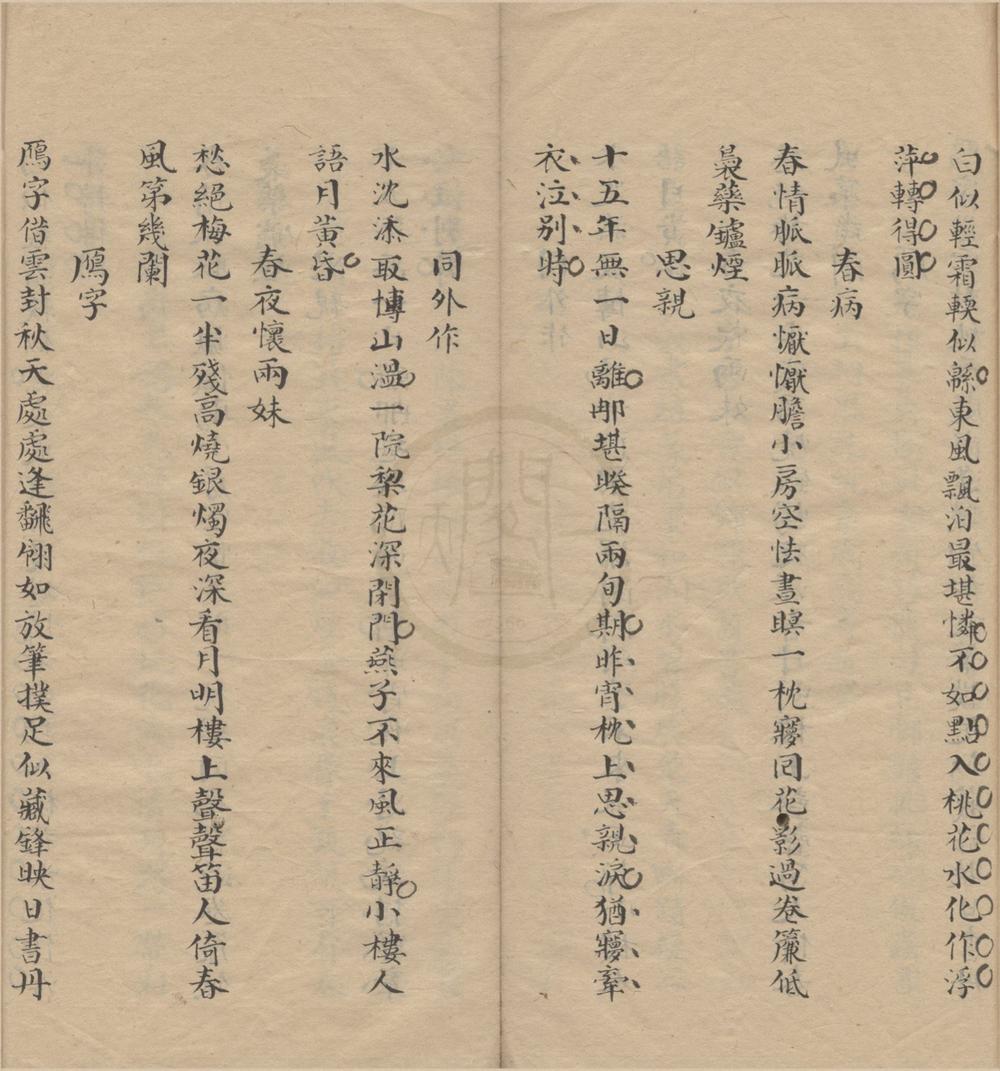 白似輕霜輭似緜東風飄泊最堪憐不如點入桃花水化作浮
萍轉得圓
春病
春情脈脈病懨懨膽小房空怯晝暝一枕寢囘花影過卷簾低
裊藥鑪煙
思親
十五年無一日離那堪暌隔兩旬期昨宵枕上思親淚猶寢牽
衣泣別時
同外作
水沈添取博山溫一院棃花深閉門燕子不來風正靜小樓人
語月黃昏
春夜懷兩妹
愁絕梅花一半殘高燒銀燭夜深看月明樓上聲聲笛人倚春
風第幾闌
鴈字
鴈字偕雲封秋天處處逢翻翎如放筆撲足似藏鋒映日書丹